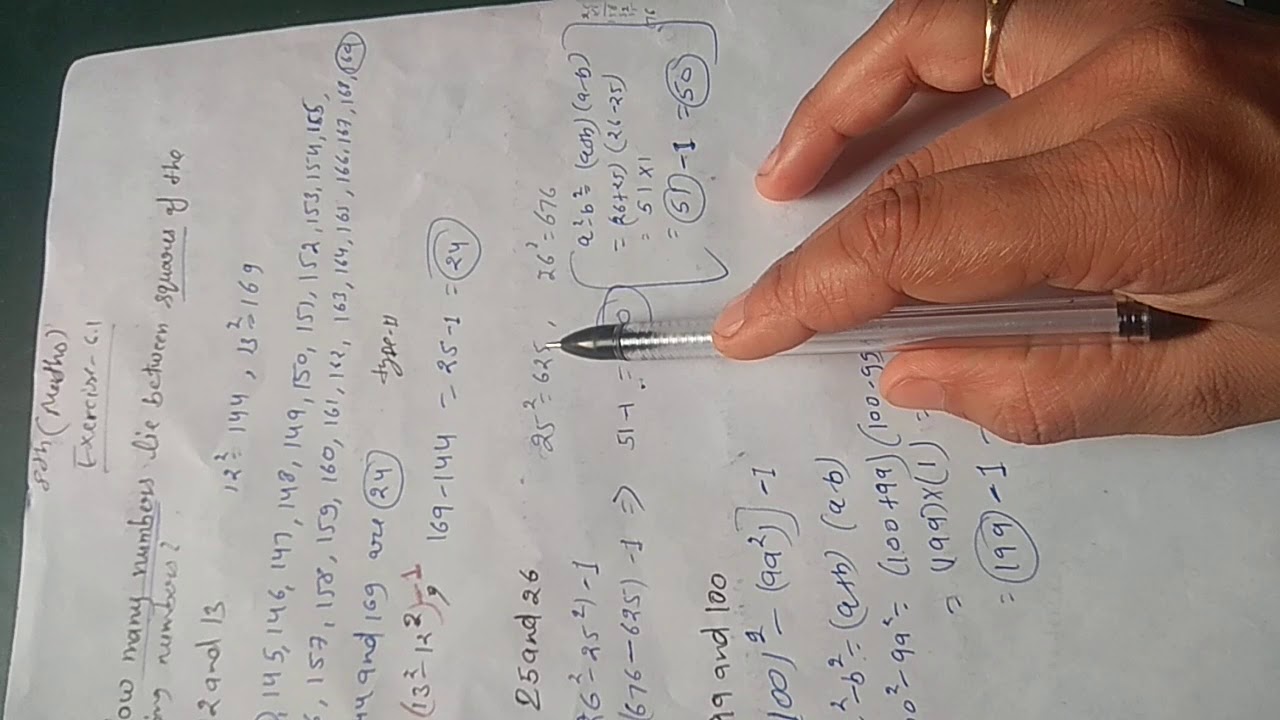 8th (Maths)
Exercise - 6.1
ow many numbers lie between squares of the
ing numbers?
2 and 13
12² = 144, 13² = 169
, 145, 146, 147, 148, 149, 150, 151, 152, 153, 154, 155,
, 157, 158, 159, 160, 161, 162, 163, 164, 165, 166, 167, 168, 169
44 and 169 are 24
(13² - 12²) - 1
169 - 144 = 25 - 1 = 24
25 and 26
25² = 625, 26² = 676
26² - 25²) - 1
(676 - 625) - 1 ⇒ 51 - 1 =
a² - b² = (a+b) (a-b)
= (26+25) (26-25)
= 51 × 1
= 51 - 1 = 50
99 and 100
100)² - (99²)] - 1
² - b² = (a+b) (a-b)
00² - 99² = (100+99) (100-99
= (199) × (1) =
= 199 - 1